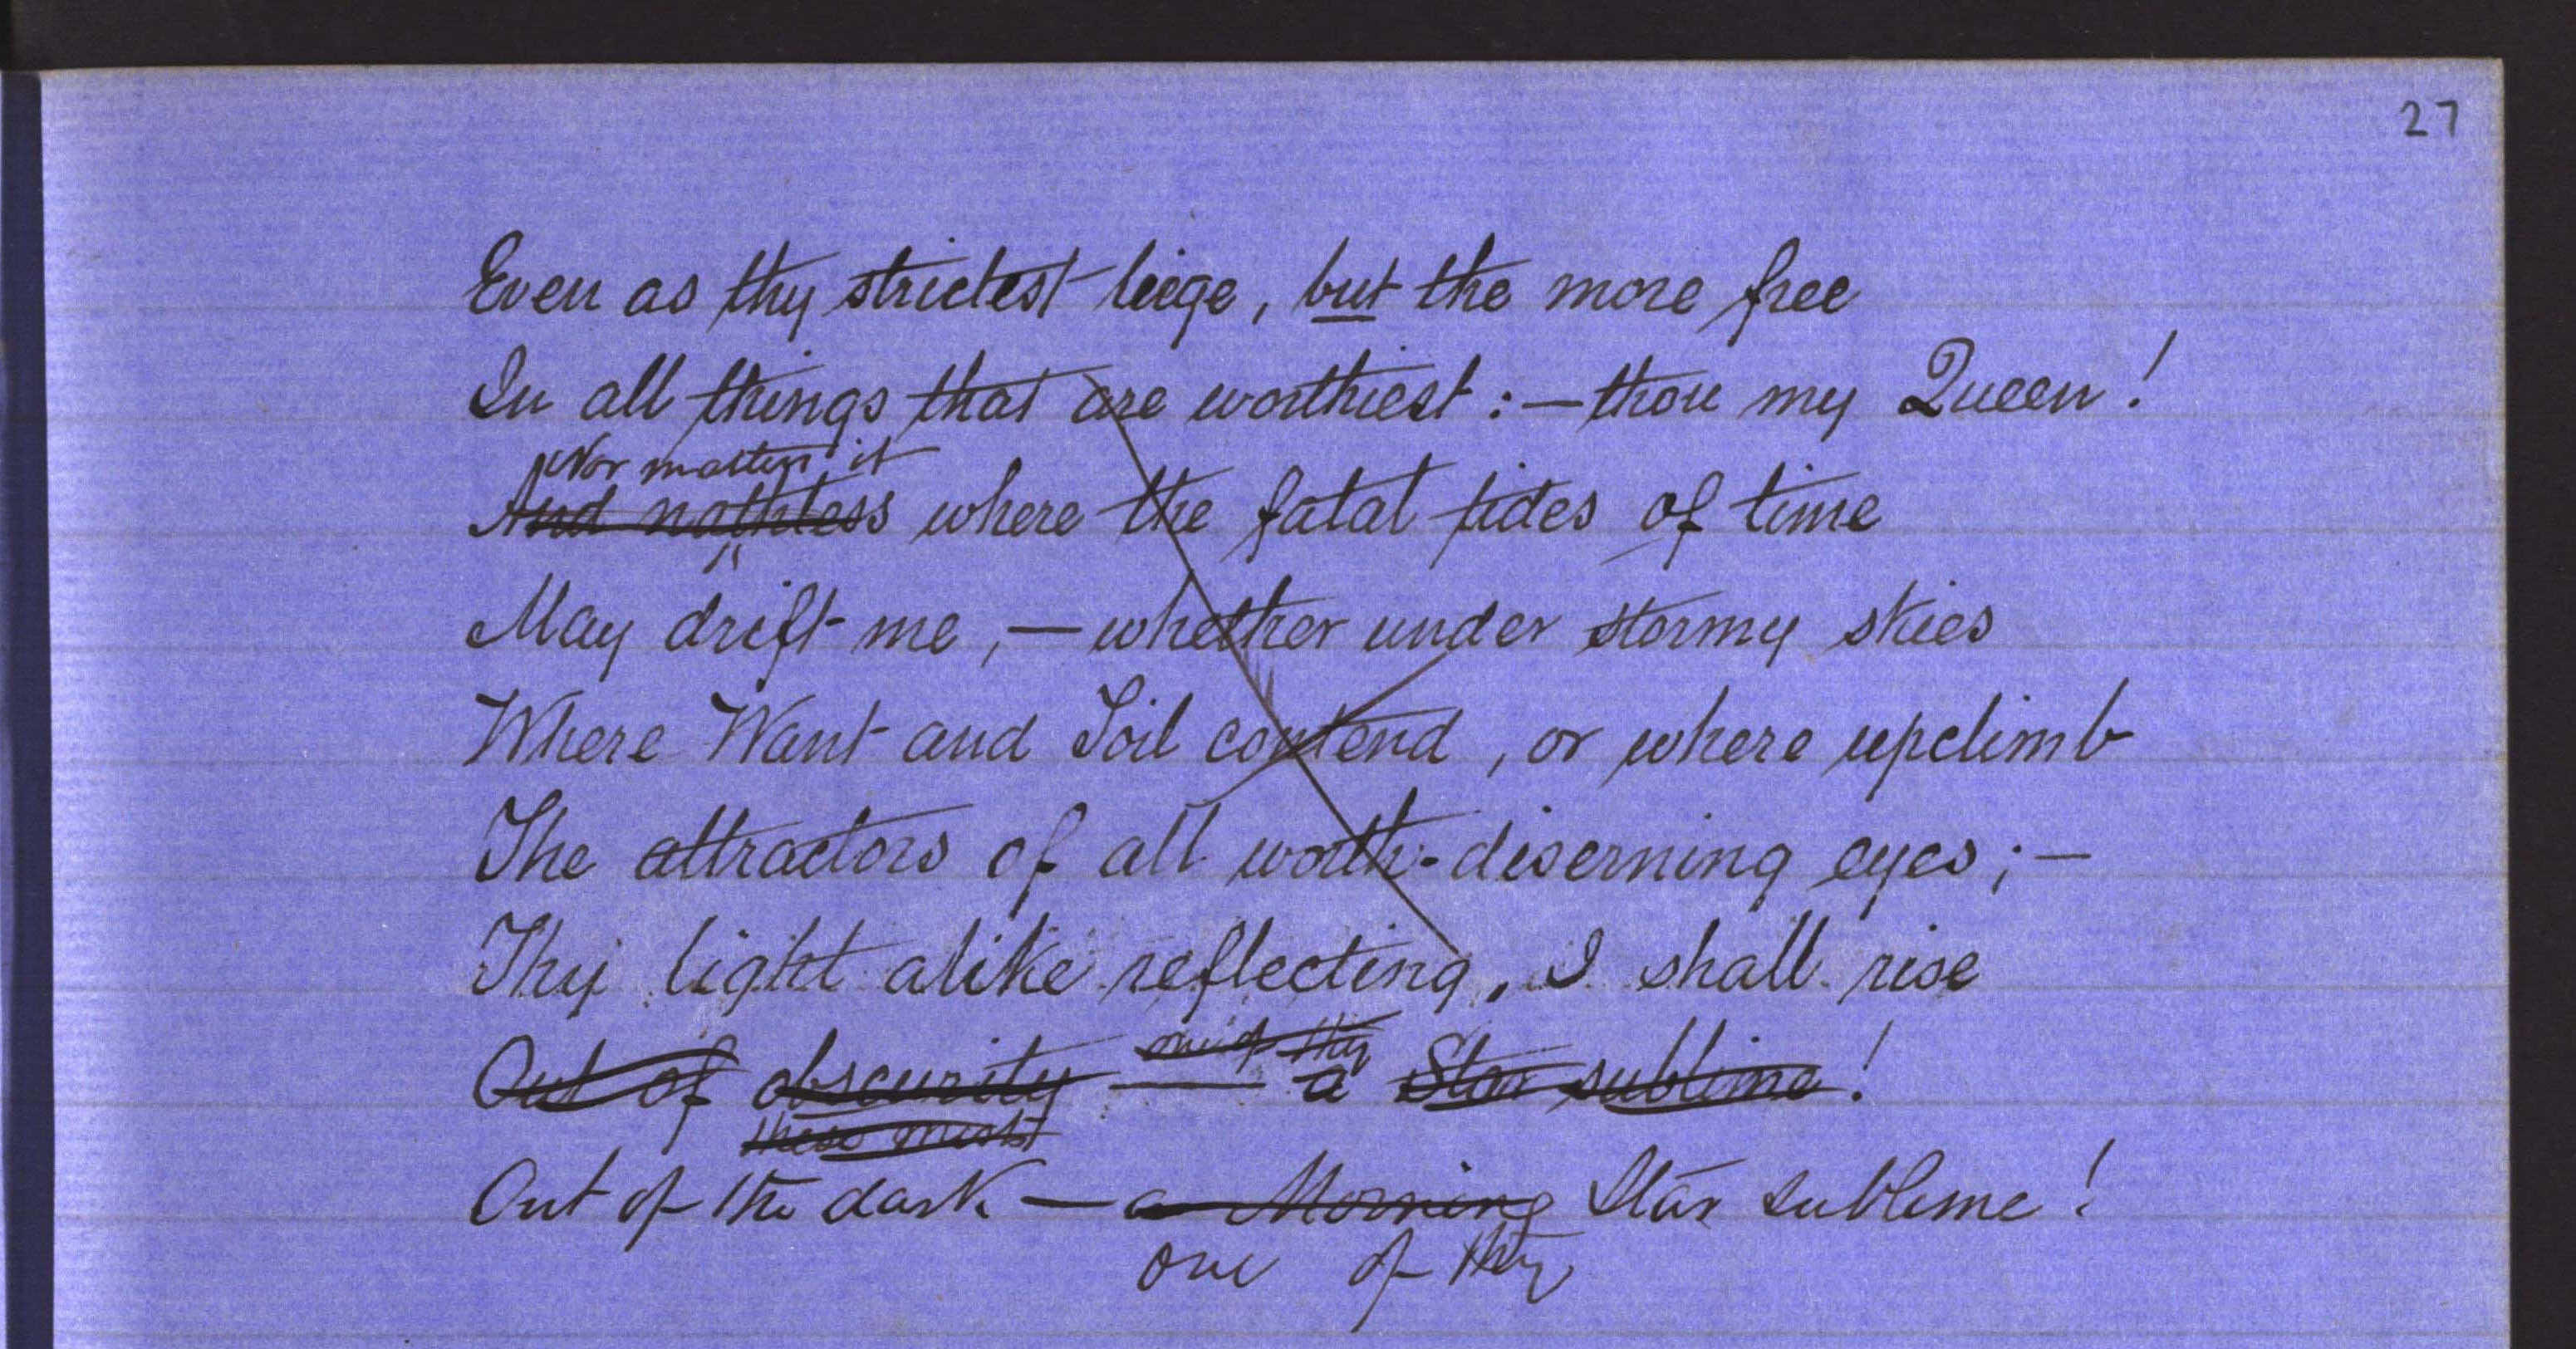 27
Even as thy strictest liege, but the more free
In all things that are worthiest :—thou my Queen!
Nor matters it
And nathless where the fatal tides of time
May drift me,—whether under stormy skies
Where Want and Toil contend, or where upclimb
The attractors of all worth-discerning eyes;—
Thy light alike reflecting, I shall rise
one of thy
Out of obscurity — a Star sublime!
these mists
Out of the dark — a Morning Star sublime!
one of thy